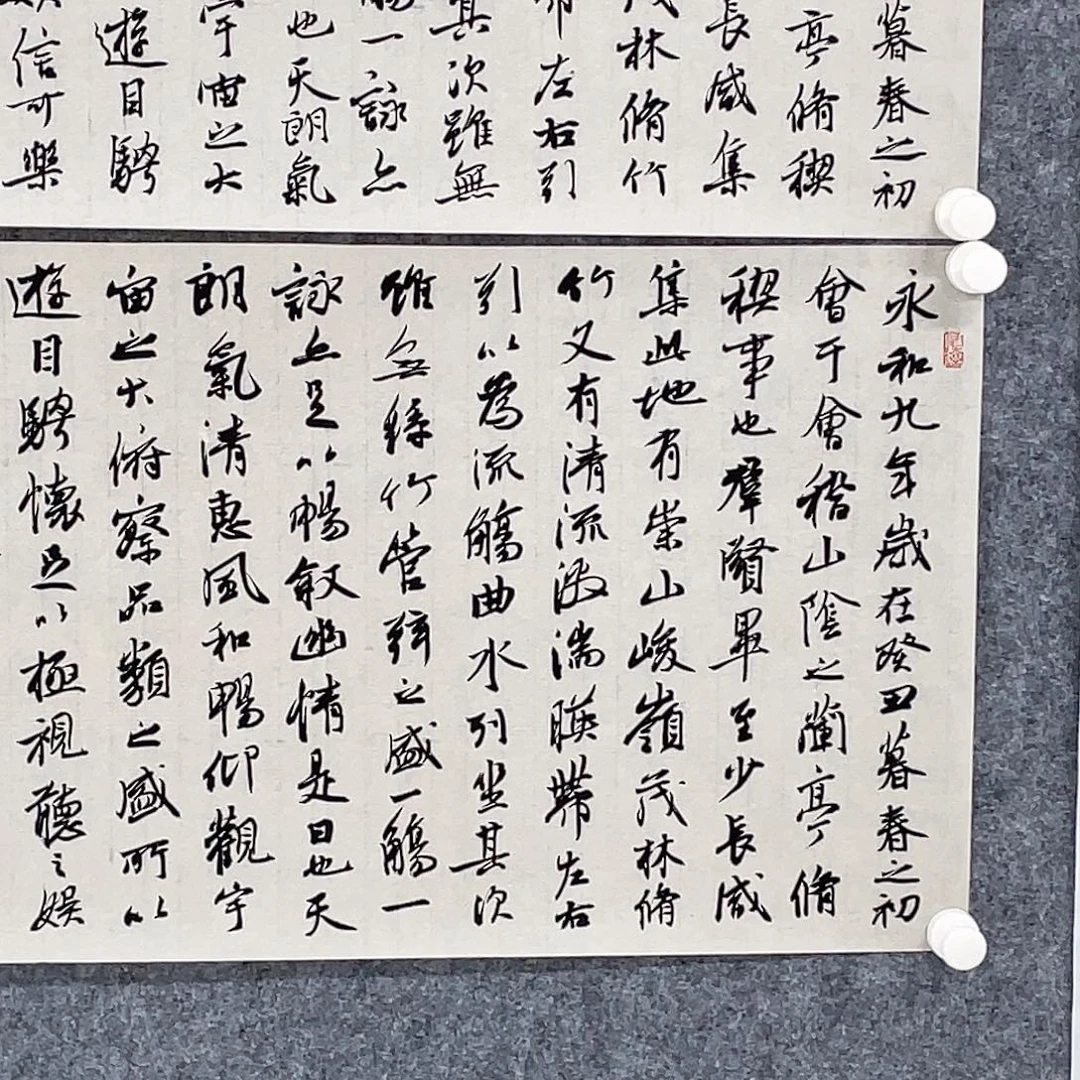 暮春之初
亭脩稧
長咸集
茂林脩竹
帶左右引
其次雖無
觴一詠亦
也天朗氣
宇宙之大
遊目騁
信可樂
永和九年歲在癸丑暮春之初
會于會稽山陰之蘭亭脩
稧事也羣賢畢至少長咸
集此地有崇山峻嶺茂林脩
竹又有清流激湍暎帶左右
引以為流觴曲水列坐其次
雖無絲竹管弦之盛一觴一
詠亦足以暢敘幽情是日也天
朗氣清惠風和暢仰觀宇
宙之大俯察品類之盛所以
遊目騁懷足以極視聽之娛